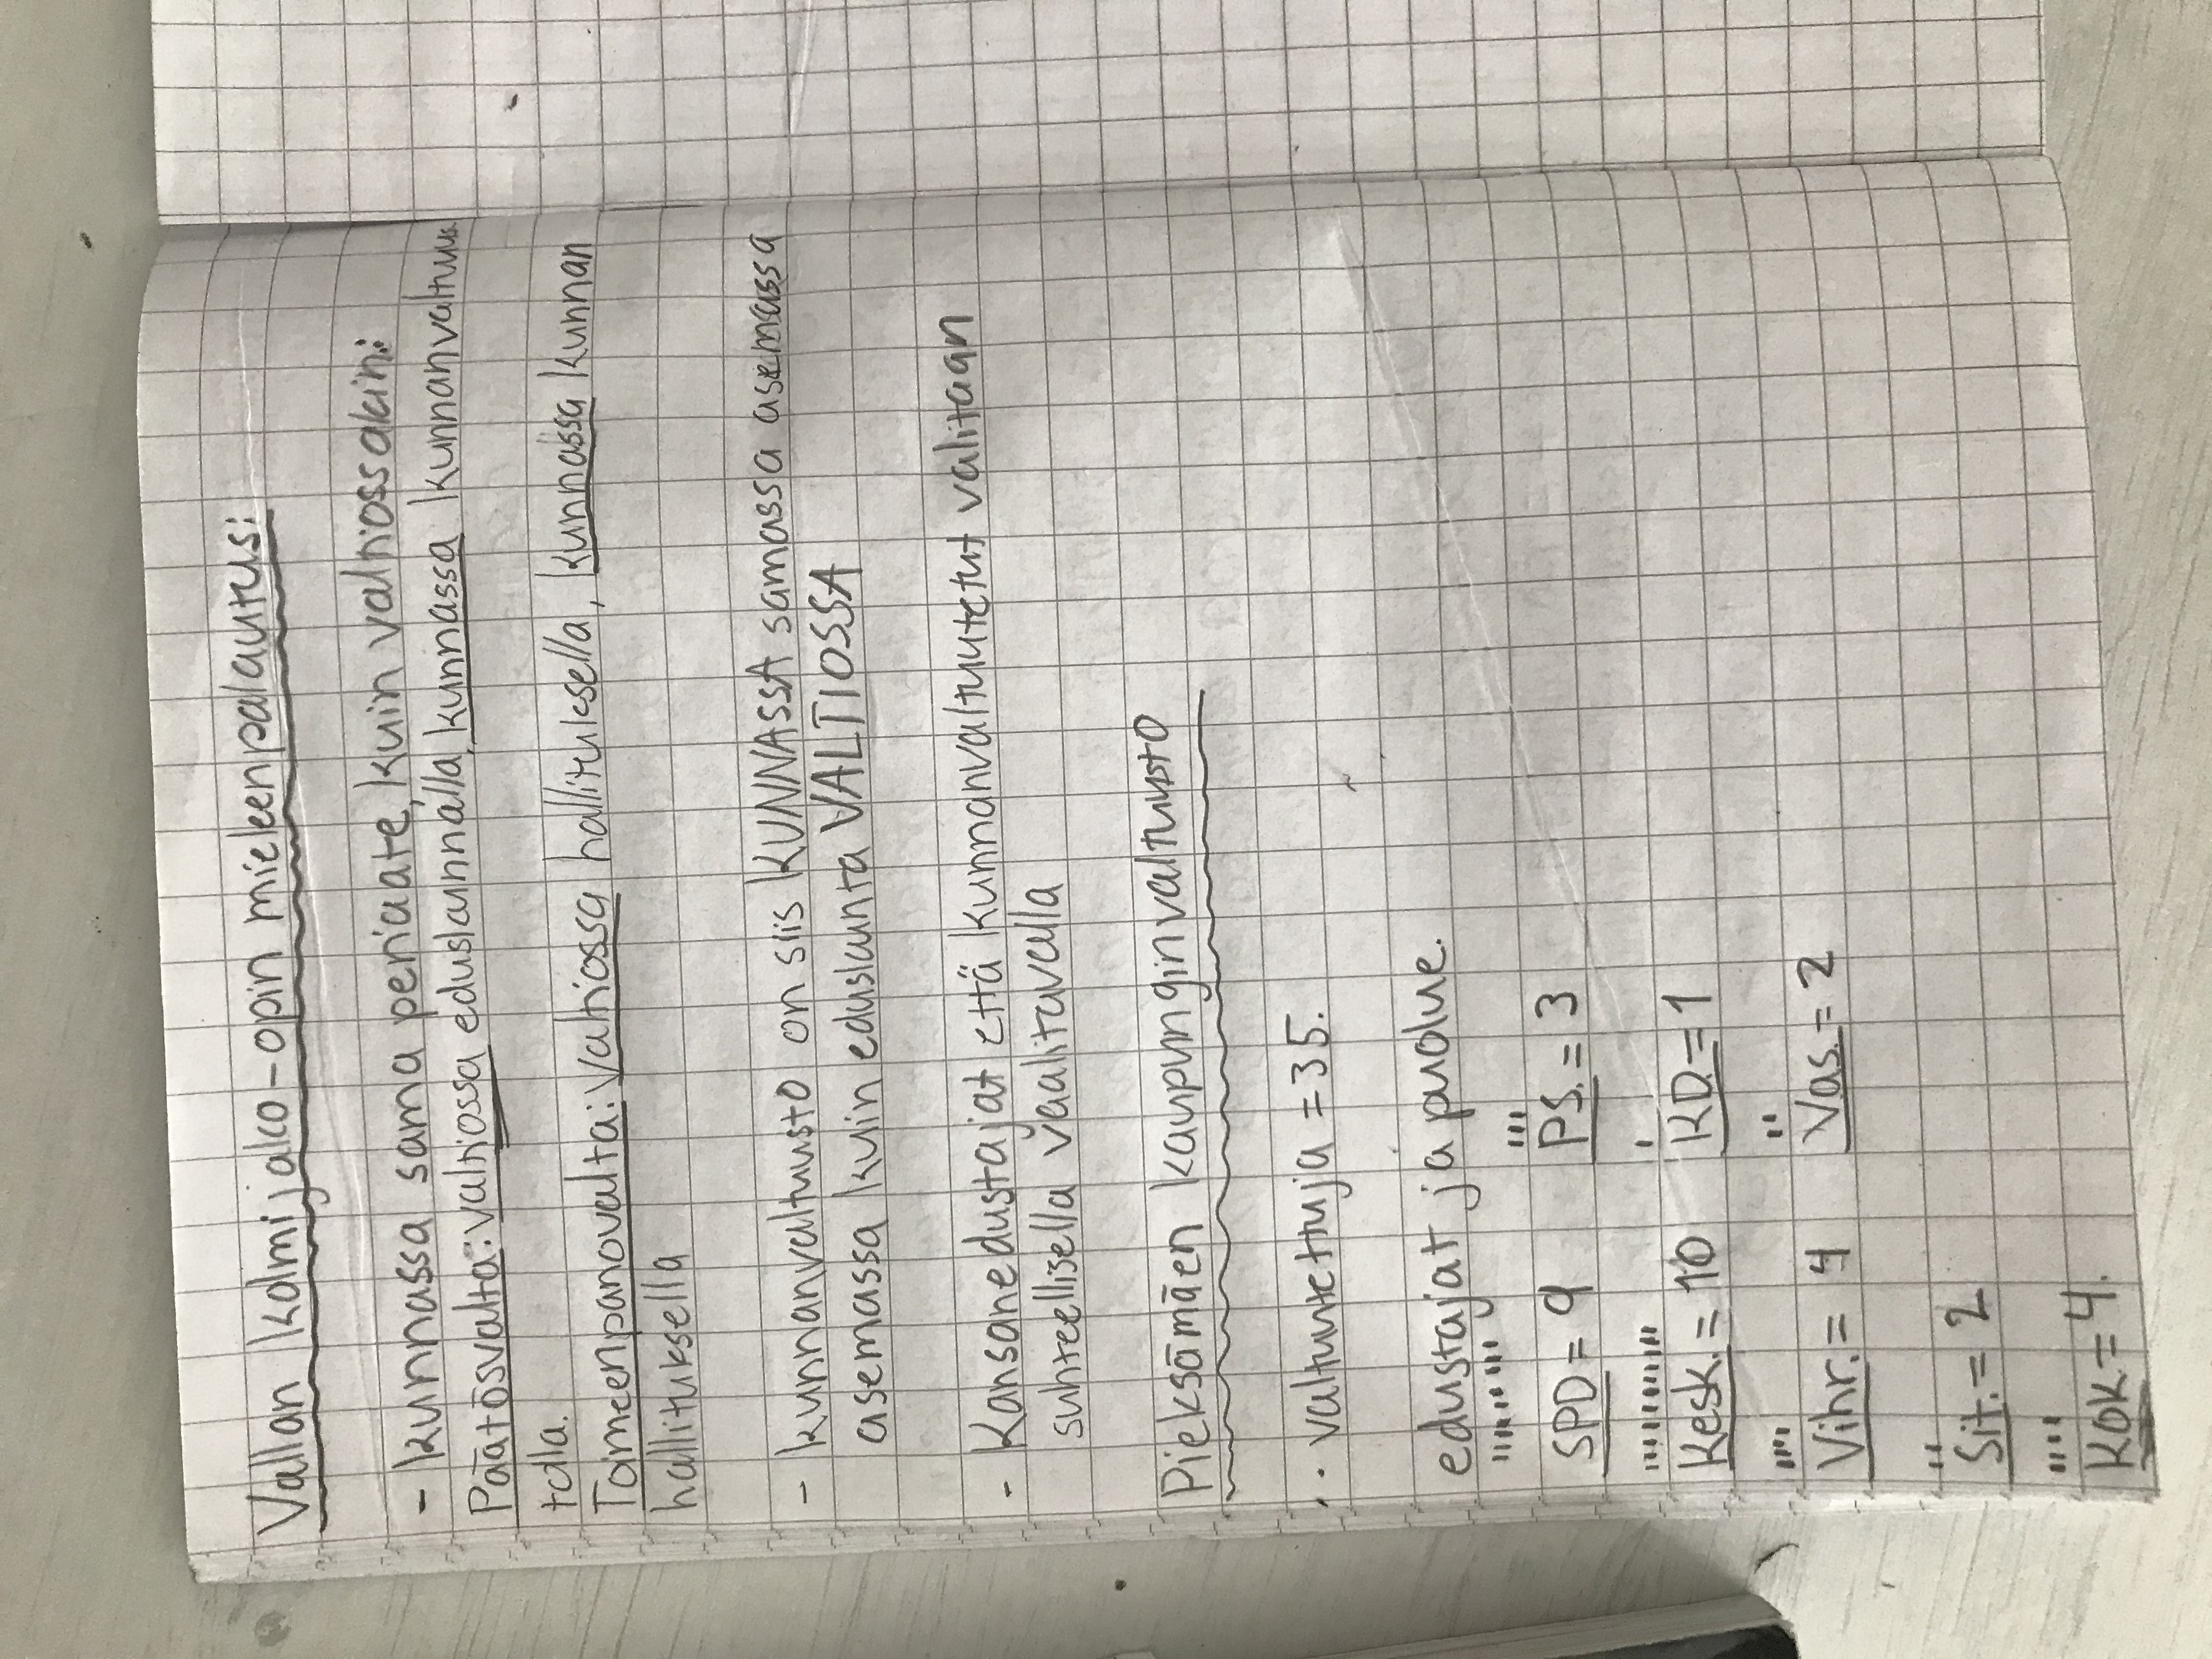 Vallan kolmijako-opin mieleenpalautus:
- kunnassa sama periaate, kuin valtiossakin:
Päätösvalta: valtiossa eduskunnalla, kunnassa kunnanvaltuus
tolla.
Toimeenpanovalta: Valtiossa hallituksella, kunnassa kunnan
hallituksella
- kunnanvaltuusto on siis KUNNASSA samassa asemassa
asemassa kuin eduskunta VALTIOSSA
- Kansanedustajat että kunnanvaltuutetut valitaan
suhteellisella vaalitavalla
Pieksämäen kaupunginvaltuusto
. valtuutettuja = 35.
edustajat ja puolue.
SPD = 9 PS. = 3
Kesk. = 10 KD = 1
Vihr. = 4 Vas. = 2
Sit. = 2
Kok = 4.